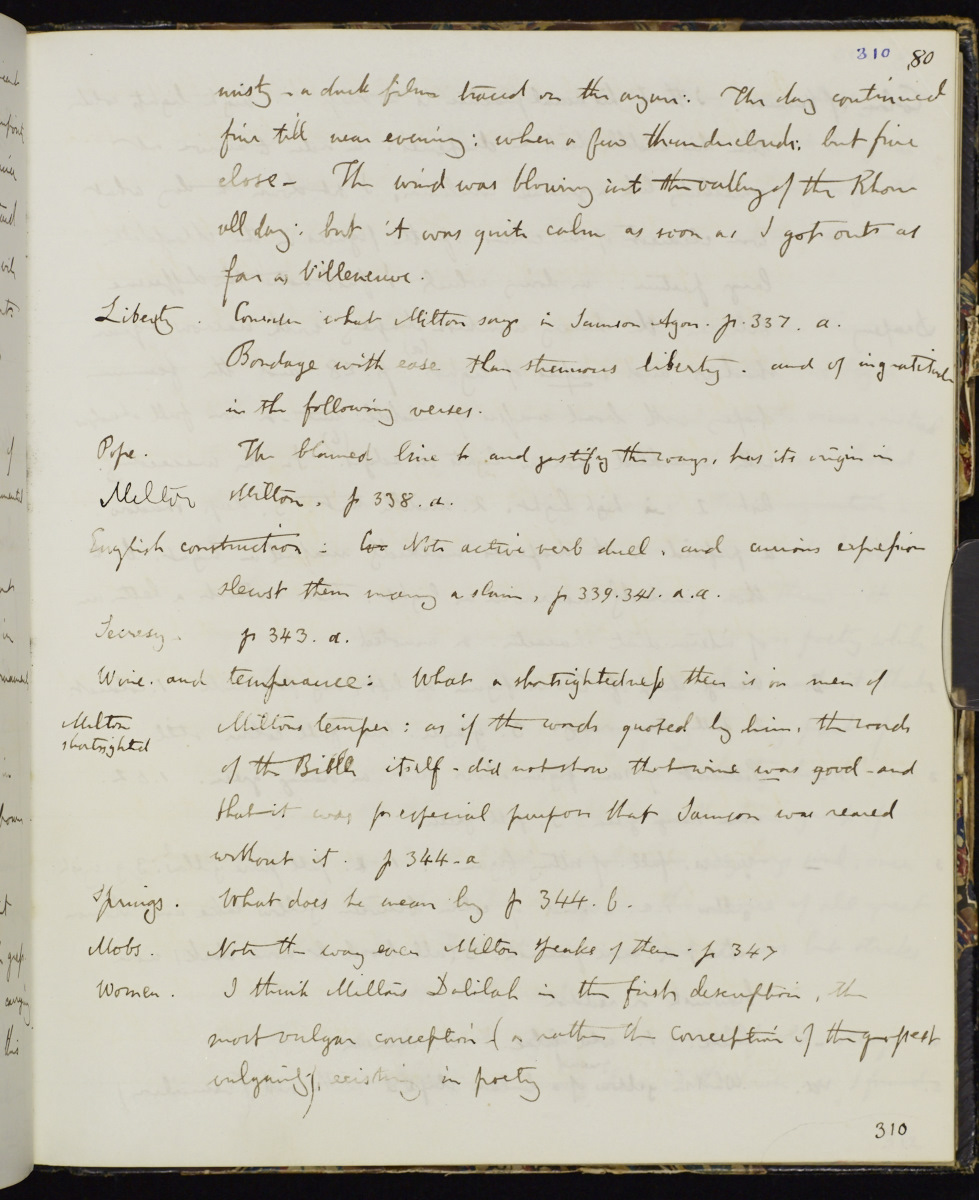 310 80
misty - a dark film traced on the azure: The day continued
fine till near evening: when a few thunderclouds: but fine
close - The wind was blowing into the valley of the Rhone
all day: but it was quite calm as soon as I got out as
far as Villeneuve.
Liberty. Consider what Milton says in Samson Agon. p. 337. a.
Bondage with ease than strenuous liberty. and of ingratitude
in the following verses.
Pope. The blamed line to and justify the ways, has its origin in
Milton Milton. p 338. a.
English construction: Note active verb duel, and curious expression
slewst them many a slain, p 339. 341. a. a.
Secresy. p 343. a.
Wine. and temperance: What a shortsightedness there is in men of
Milton shortsighted
Miltons temper: as if the words quoted by him, the words
of the Bible itself - did not show that wine was good - and
that it was for especial purpose that Samson was reared
without it. p 344 - a
Springs. What does he mean by p 344. b.
Mobs. Note the way even Milton speaks of them. p 347
Women. I think Miltons Dalilah in the first description, the
most vulgar conception (or rather the conception of the grossest
vulgarity), existing in poetry
310